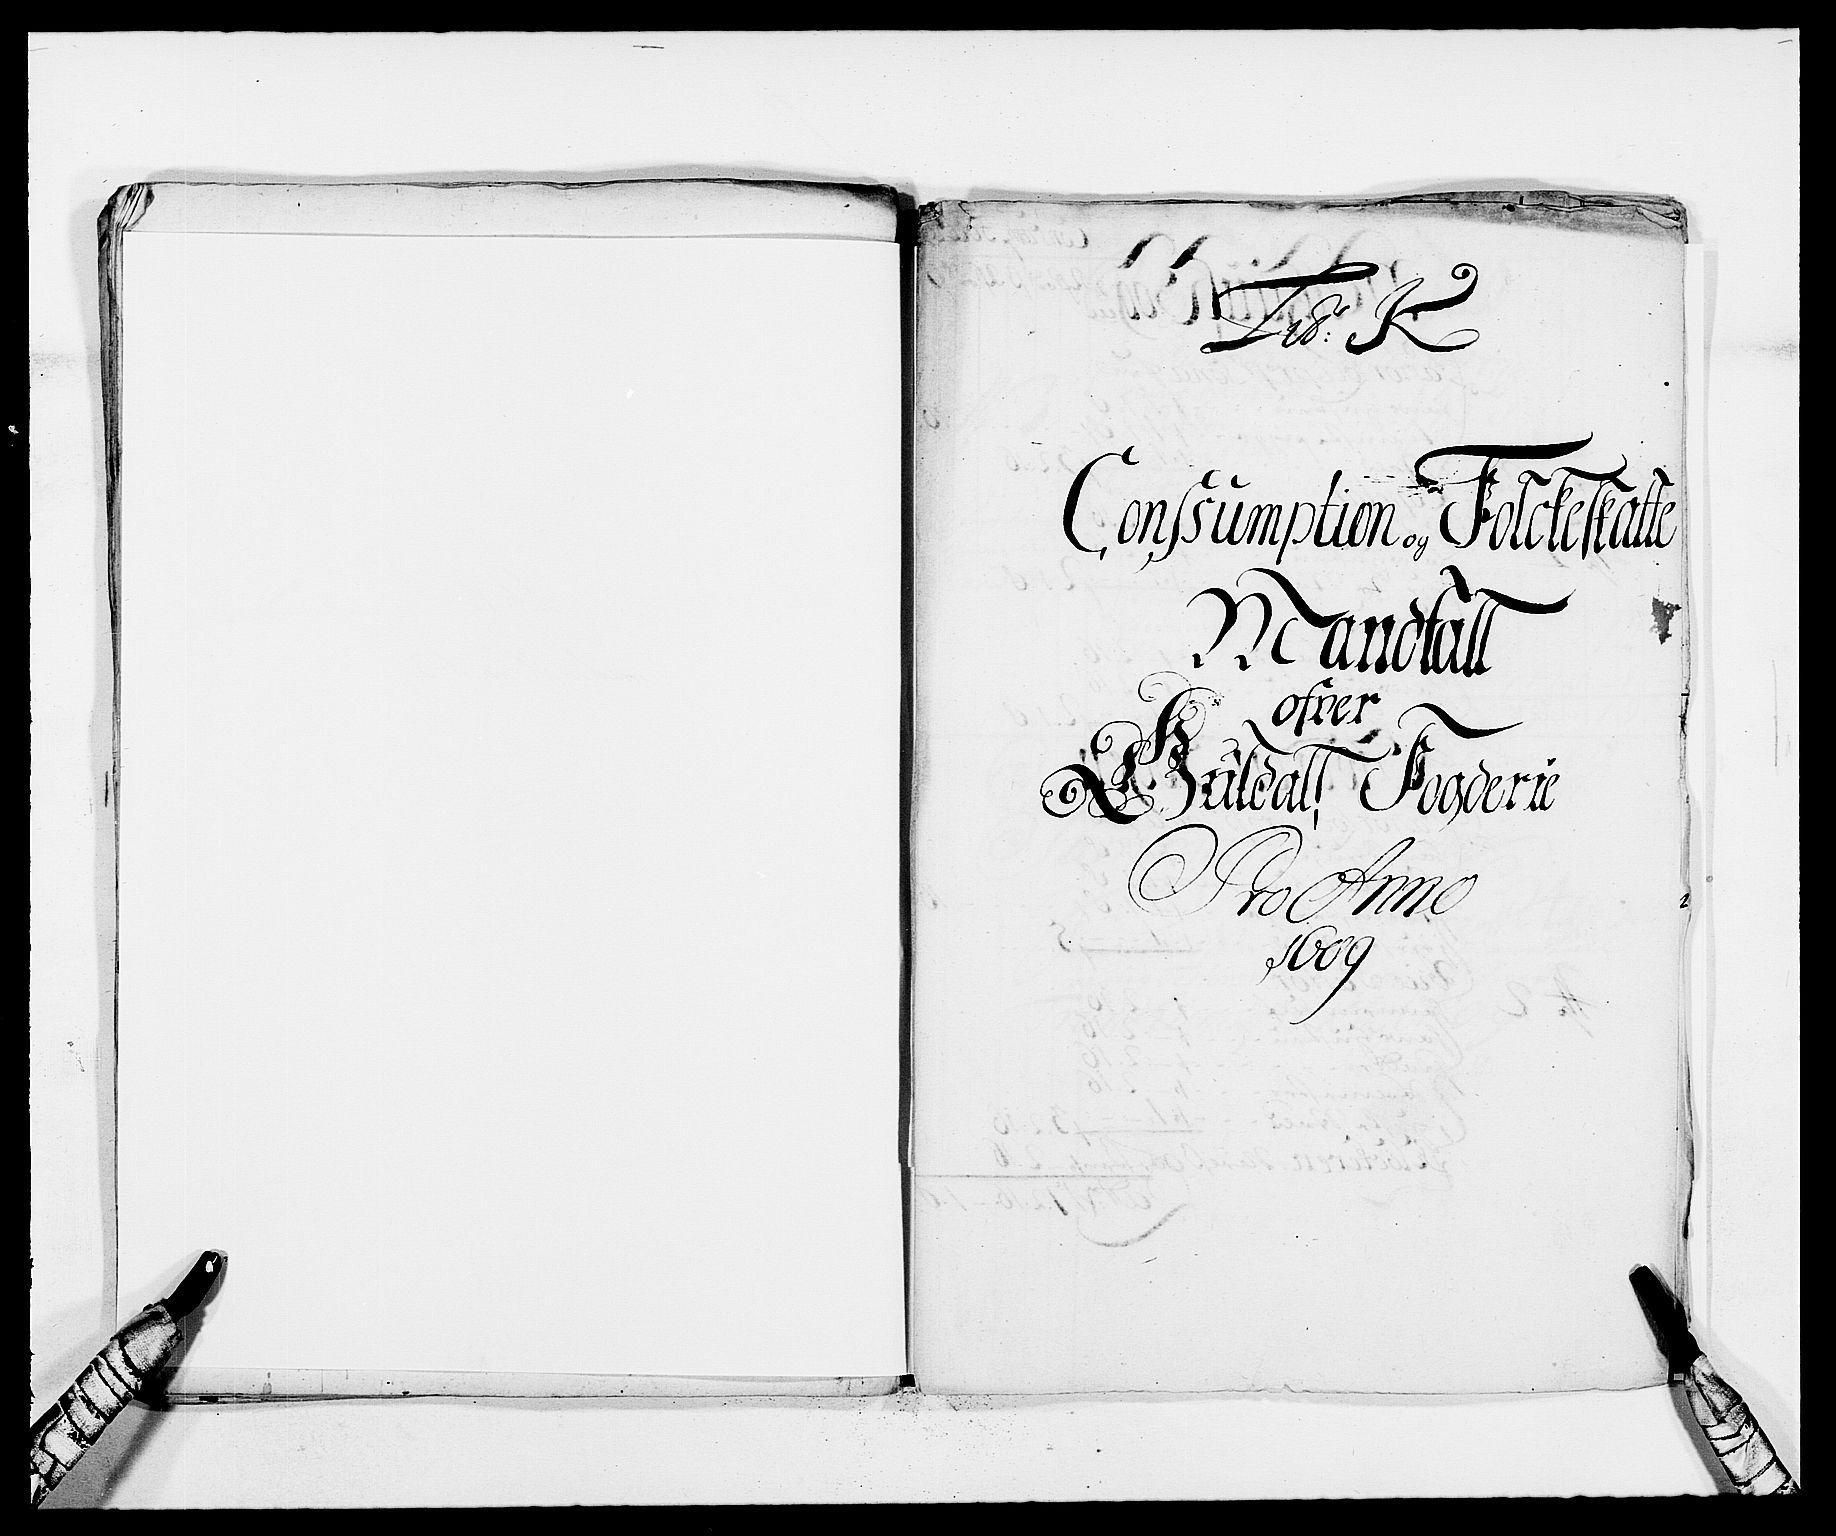 Lib: K
Consſumption og Folckeskatte
Mandtall
ofver
Guldalſ Fogderie
Pro Anno
1689